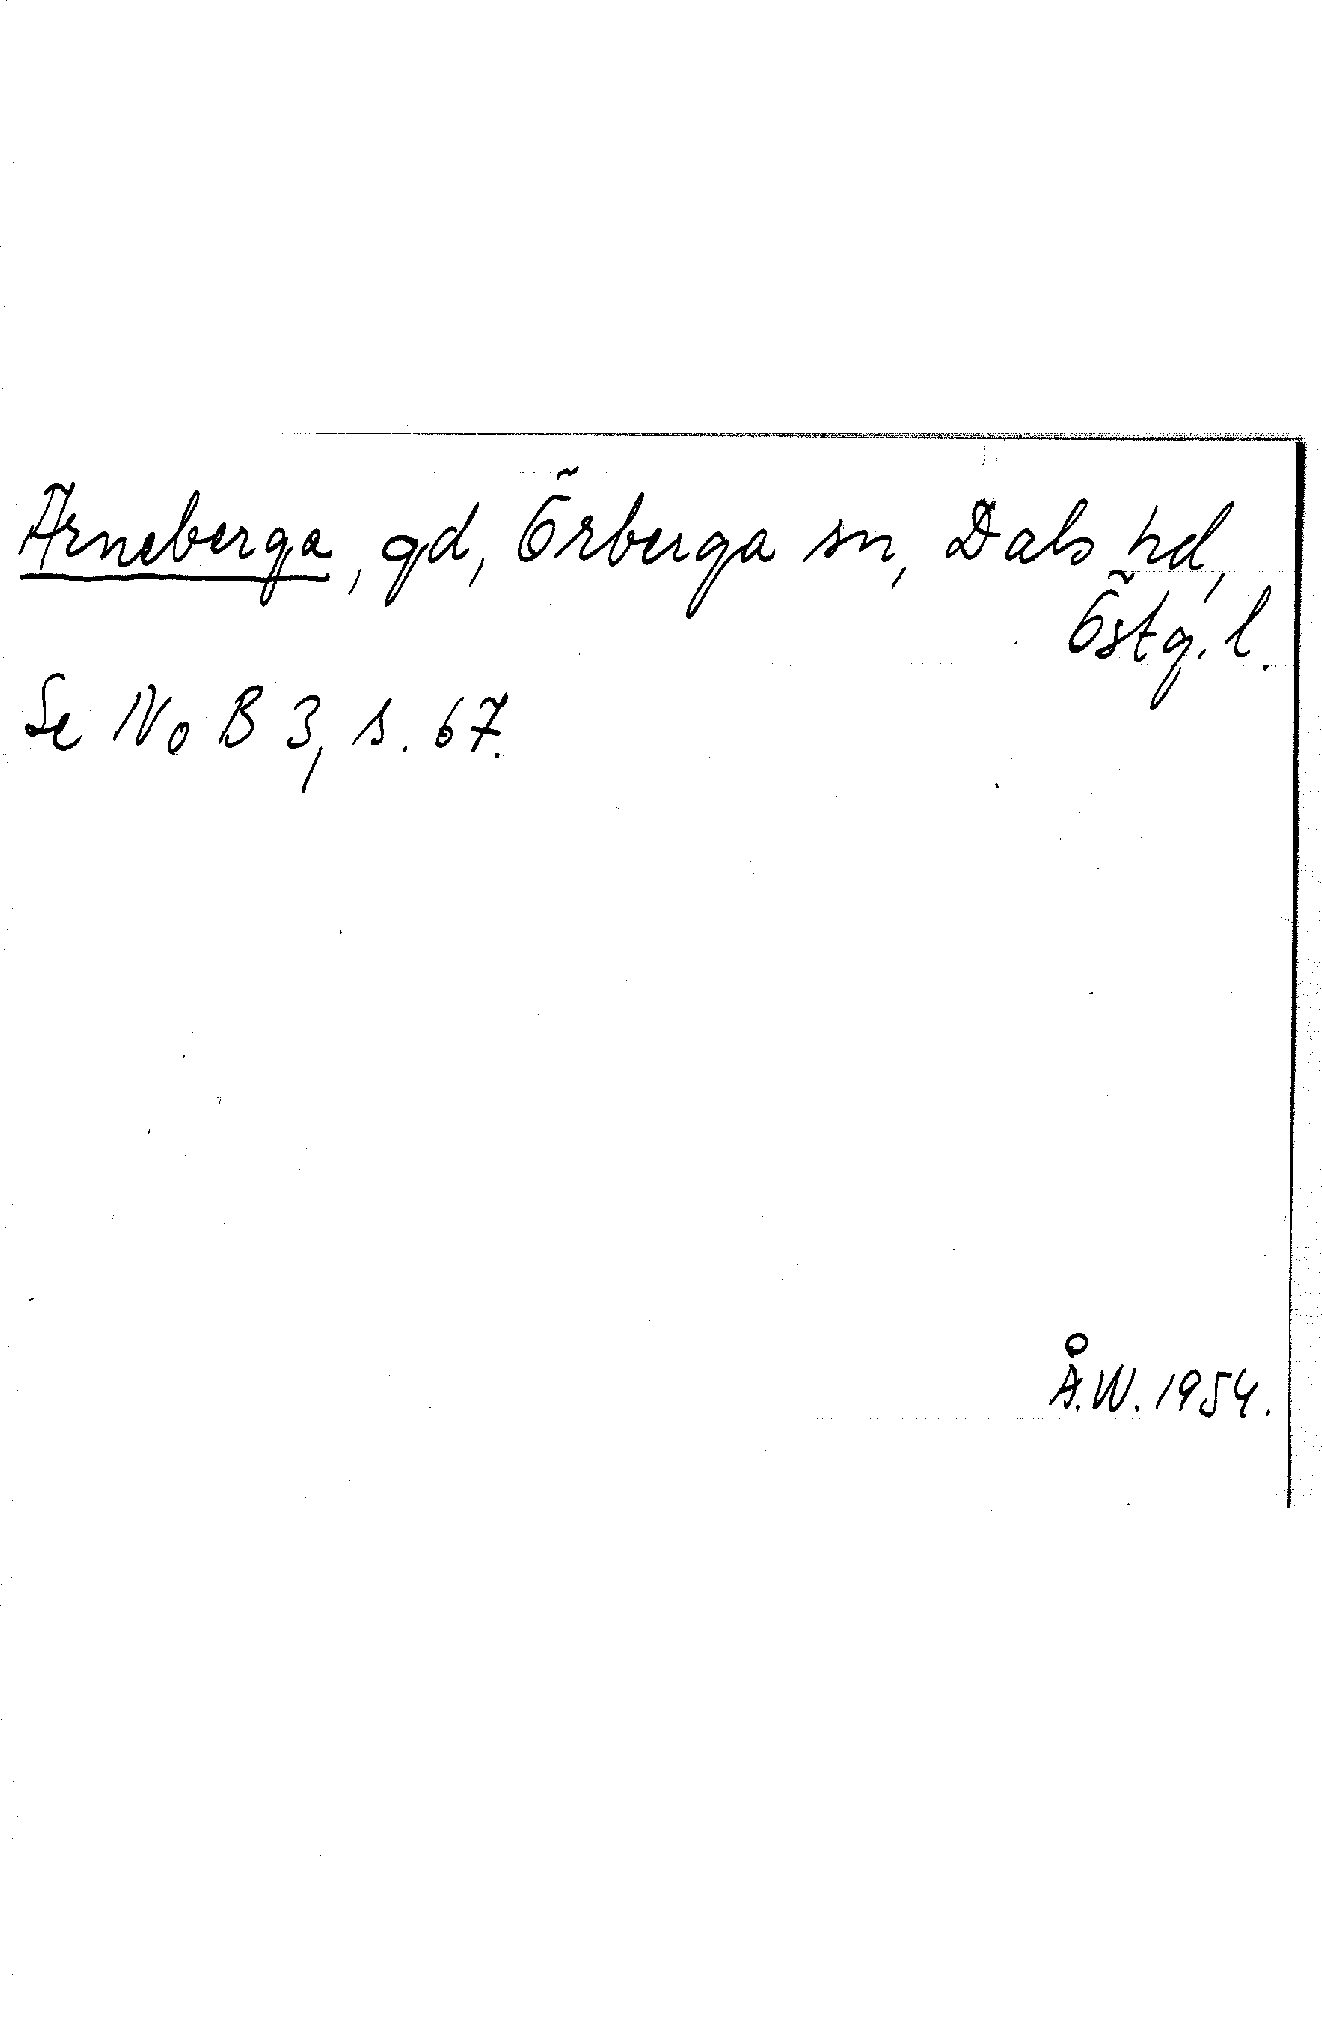 Arneberga, gd, Örberga sn, Dals hd,
Östg. l.
Se NoB 3, s. 67.
Å.W. 1954.